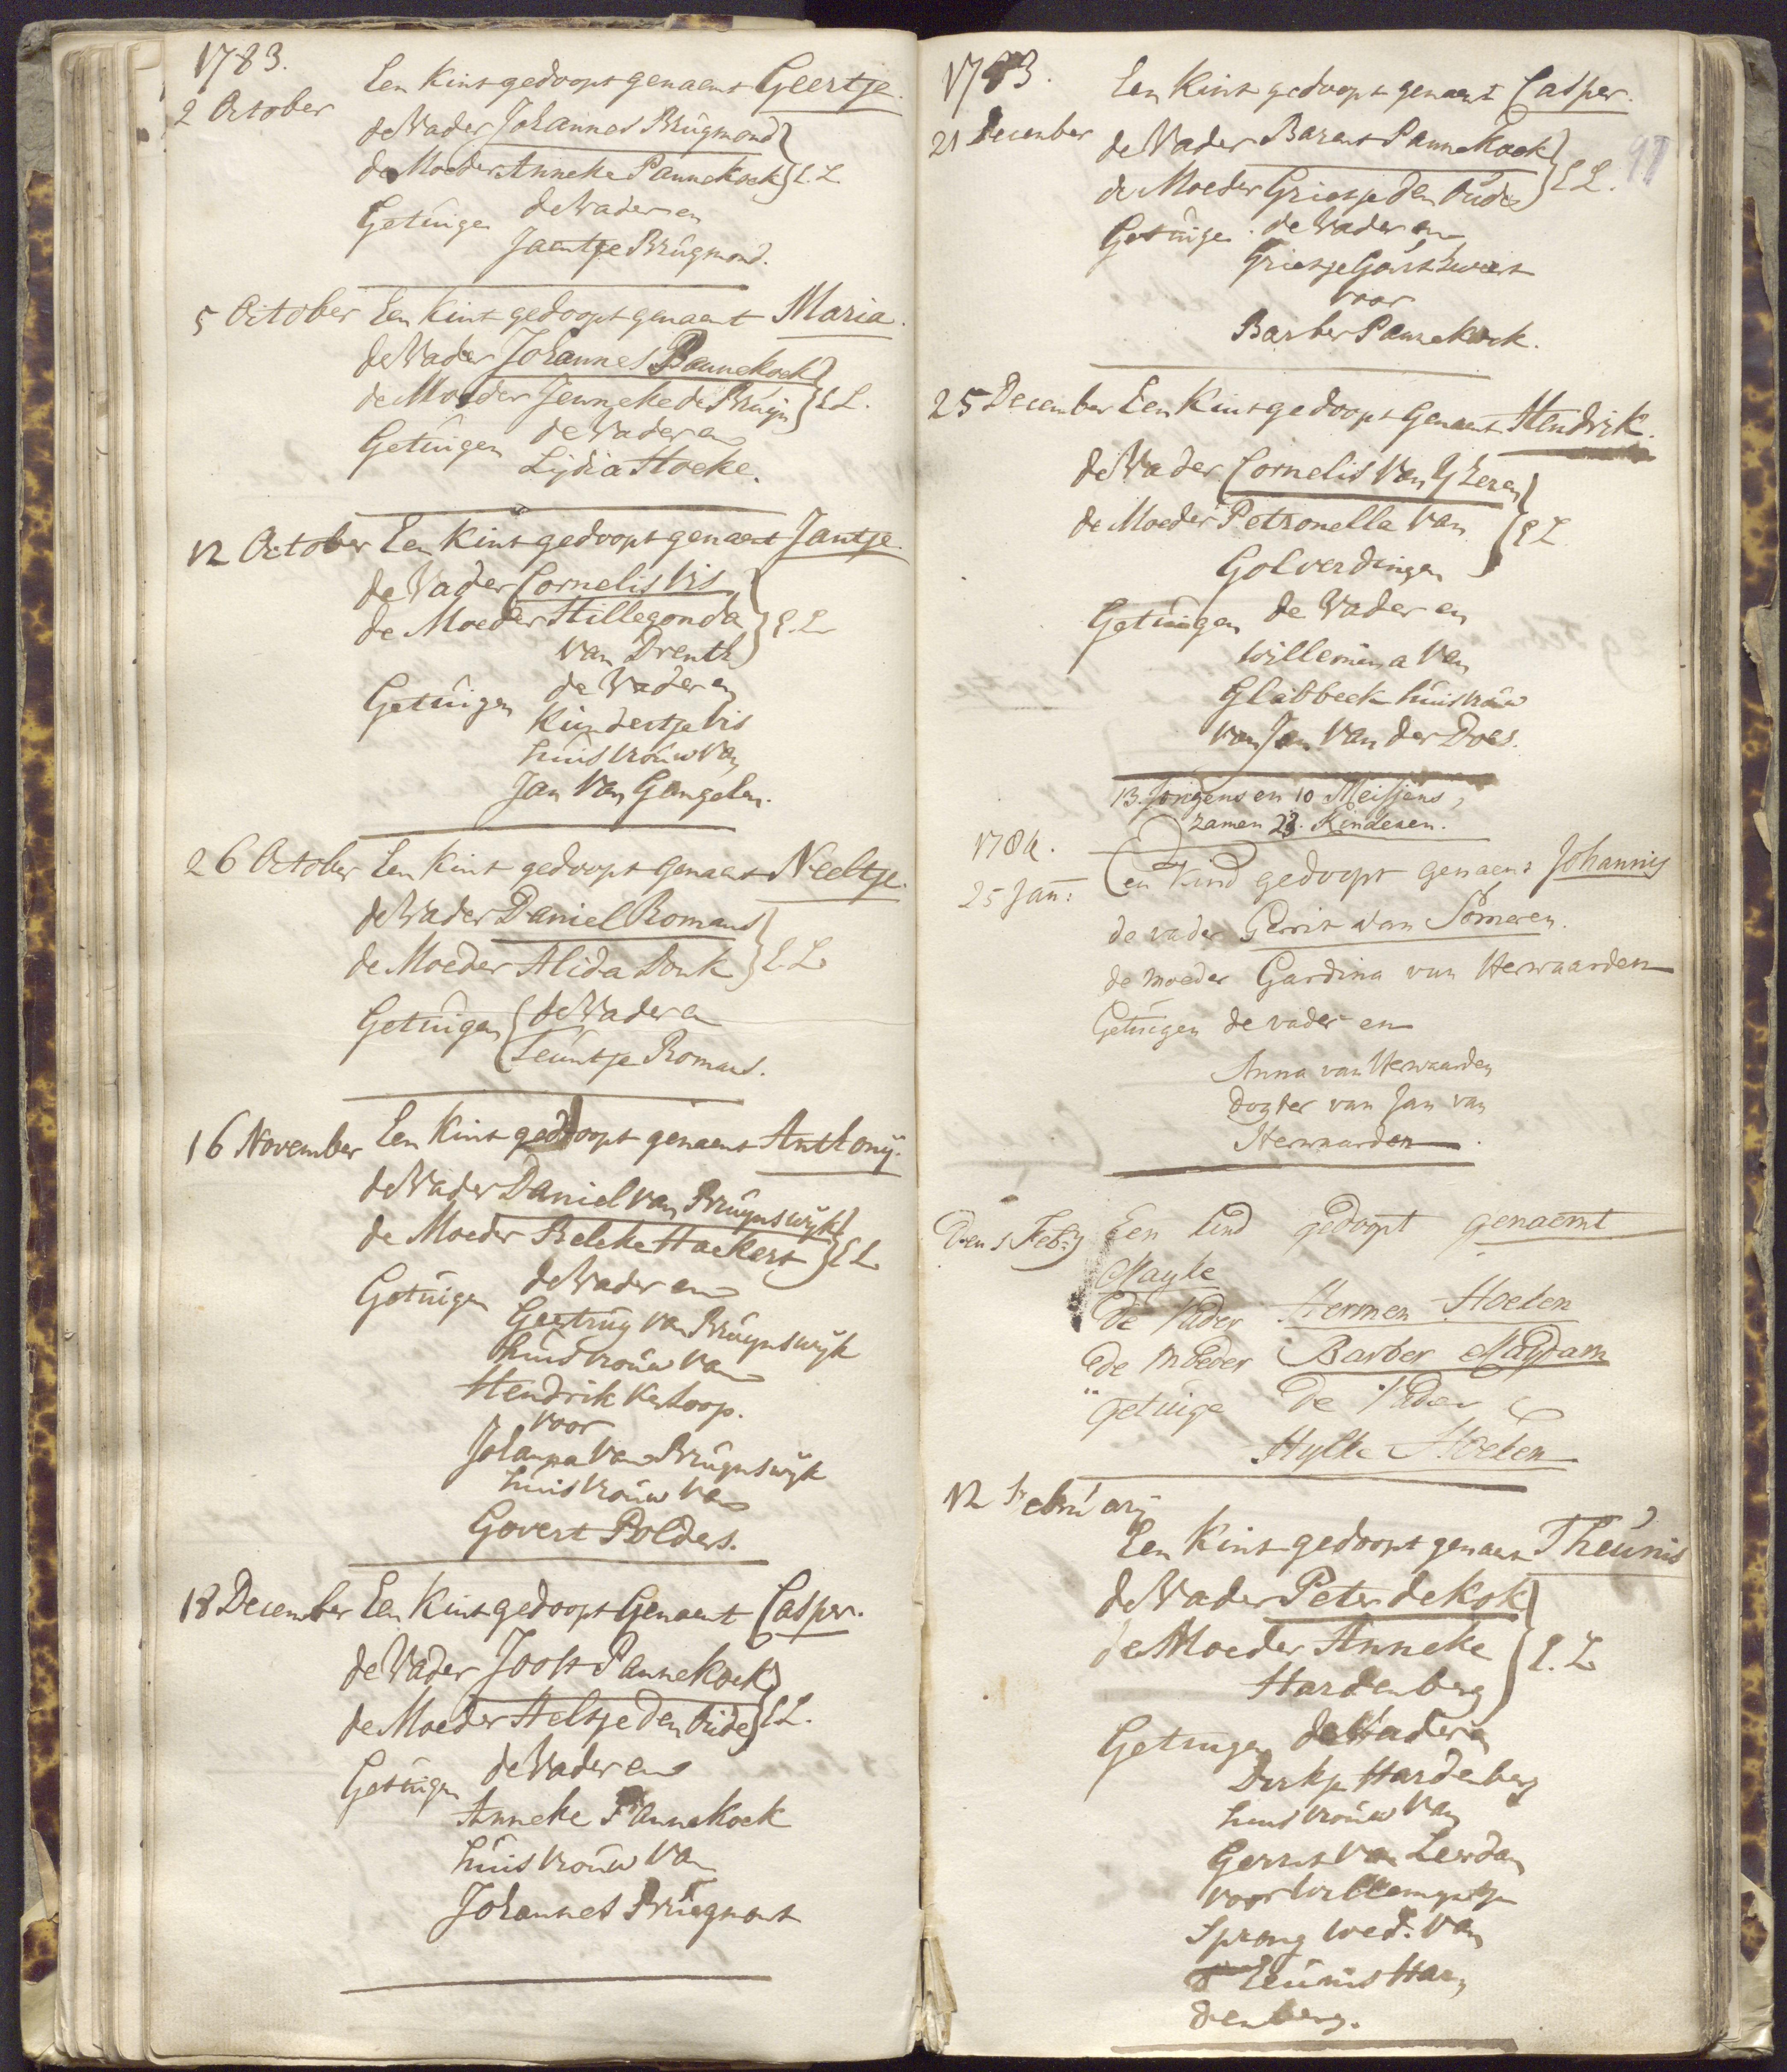 1783.
2 October Een Kint gedoopt genaemt Geertje.
de Vader Johannes Brugmond
de Moeder Anneke Pannekoek E.L.
Getuigen de Vader en
Jaentje Brugmond.
5 October Een Kint gedoopt genaemt Maria.
de Vader Johannes Pannekoek
de Moeder Jenneke de Bruijn E.L.
Getuigen de Vader en
Lijdia Hoeke.
12 October Een Kint gedoopt genaemt Jantje.
de Vader Cornelis Vis
de Moeder Hillegonda E.L.
van Drenth
Getuigen de Vader en
Kundertje Vis
huisvrouw van
Jan van Gangelen.
26 October Een Kint gedoopt genaemt Neeltje.
de Vader Daniel Romans
de Moeder Alida Donk E.L.
Getuigen de Vader en
Teuntje Romans.
16 November Een Kint gedoopt genaemt Anthonij.
de Vader Daniel van Bruynswijk
de Moeder Beleke Hackert E.L.
Getuigen de Vader en
Geertruy van Bruynswijk
huisvrouw van
Hendrik Verloop.
voor
Johanna van Bruynswijk
huisvrouw van
Govert Polders.
18 December Een Kint gedoopt Genaemt Casper.
de Vader Joost Pannekoek
de Moeder Aeltje den Oude E.L.
Getuigen de Vader en
Anneke Pannekoek
huisvrouw van
Johannes Brugmont
1783.
21 December Een Kint gedoopt genaemt Casper.
de Vader Barent Pannekoek
de Moeder Grietje den Oude E.L.
Getuigen de Vader en
Grietje
voor
Barber Pannekoek.
25 December Een Kint gedoopt Genaemt Hendrik.
de Vader Cornelis van Yzeren
de Moeder Petronella van E.L.
Golverdingen
Getuigen de Vader en
Willemina van
Glabbeek huisvrouw
van Jan van der Does.
13 Jongens en 10 Meisjens,
zamen 23. Kinderen.
1784.
25 Jan: Een Kind gedoopt genaemt Johannis
de vader Gerrit van Someren.
de moeder Gardina van Herwaarden
Getuigen de vader en
Anna van Herwaarden
Dogter van Jan van
Herwaarden.
Den 1 Feb:ry Een kind gedoopt genaemt
Mayke
De Vader Hermen Hoeken
De Moeder Barber Maydam
getuige De Vader &
Hylke Hoeken
12 Februarij
Een Kint gedoopt genaemt Theunis
de Vader Peter de Kok
de Moeder Anneke E.L.
Hardenberg
Getuigen de Vader en
Dirkje Hardenberg
huisvrouw van
Gerrit van Leerdam
voor Willemyntje
Sprong wed: van
Teunis Har,
denberg.